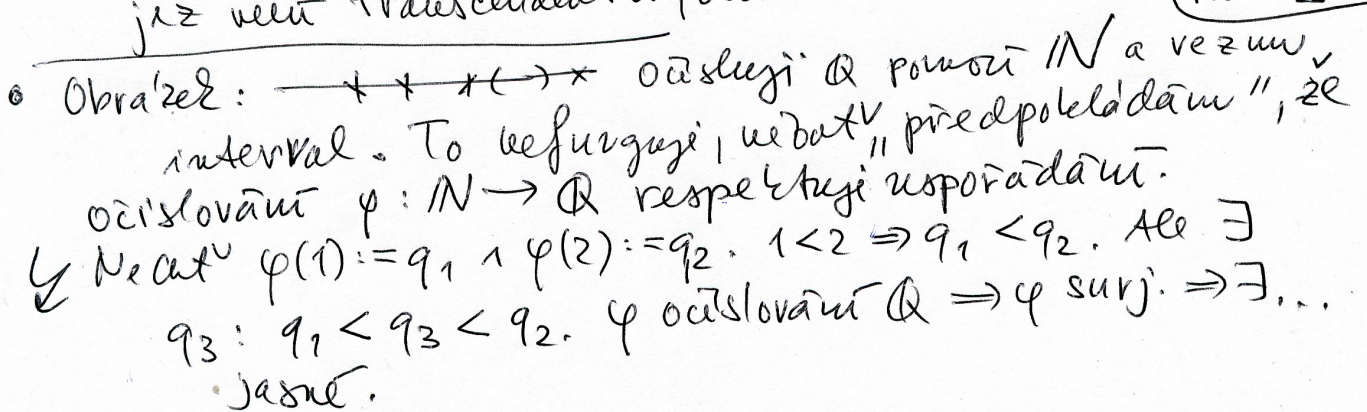 již není
Obrázek: očísluji ℚ pomocí ℕ a vezmu
interval. To nefunguje, neboť „předpokládám", že
očíslování φ: ℕ → ℚ respektuje uspořádání.
Nechť φ(1):=q₁ ∧ φ(2):=q₂. 1<2 ⇒ q₁ < q₂. Ale ∃
q₃: q₁ < q₃ < q₂. φ očíslování ℚ ⇒ φ surj. ⇒ ∃...
jasné.